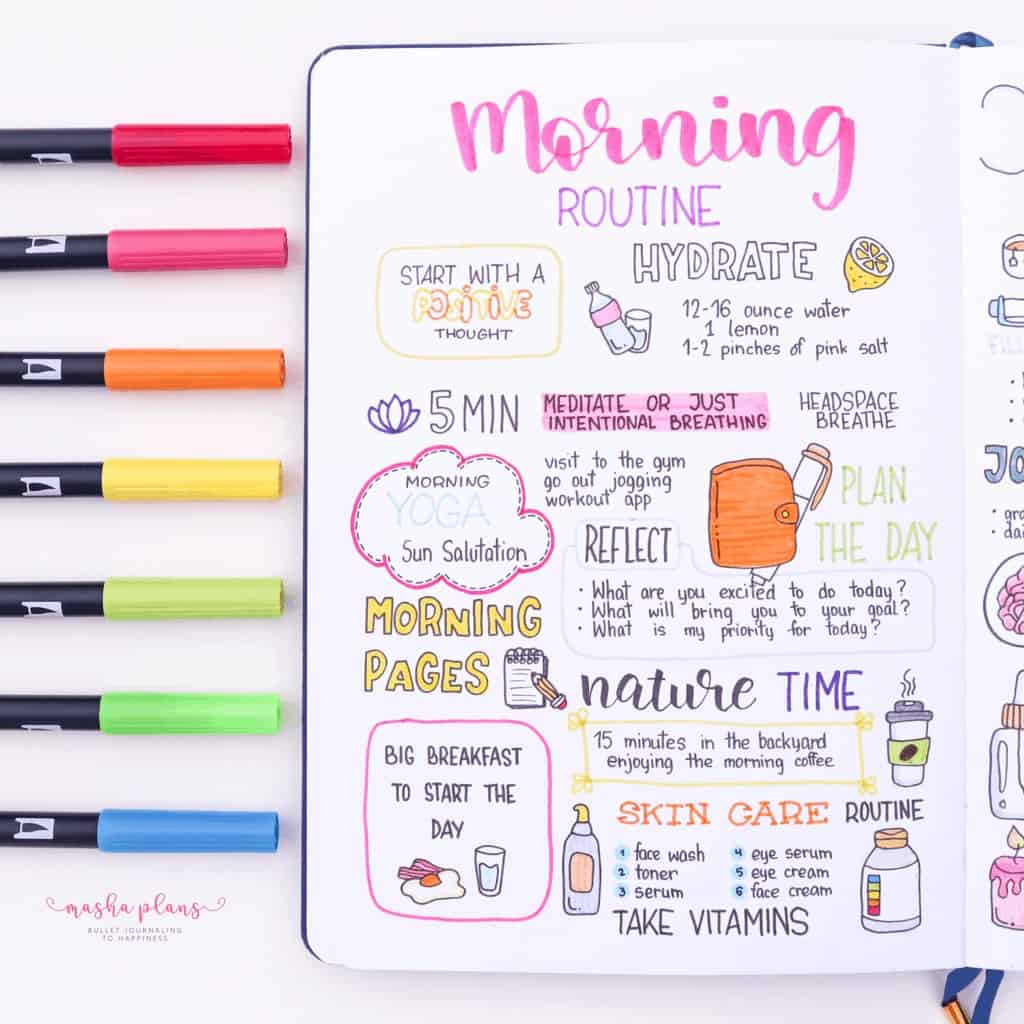 Morning
ROUTINE
START WITH A
POSITIVE
THOUGHT
HYDRATE
12-16 ounce water
1 lemon
1-2 pinches of pink salt
5 MIN
MEDITATE OR JUST
INTENTIONAL BREATHING
HEADSPACE
BREATHE
MORNING
YOGA
Sun Salutation
visit to the gym
go out jogging
workout app
PLAN
THE DAY
REFLECT
· What are you excited to do today?
· What will bring you to your goal?
· What is my priority for today?
MORNING
PAGES
nature TIME
15 minutes in the backyard
enjoying the morning coffee
BIG BREAKFAST
TO START THE
DAY
SKIN CARE ROUTINE
1 face wash
2 toner
3 serum
4 eye serum
5 eye cream
6 face cream
TAKE VITAMINS
masha plans
BULLET JOURNALING
TO HAPPINESS